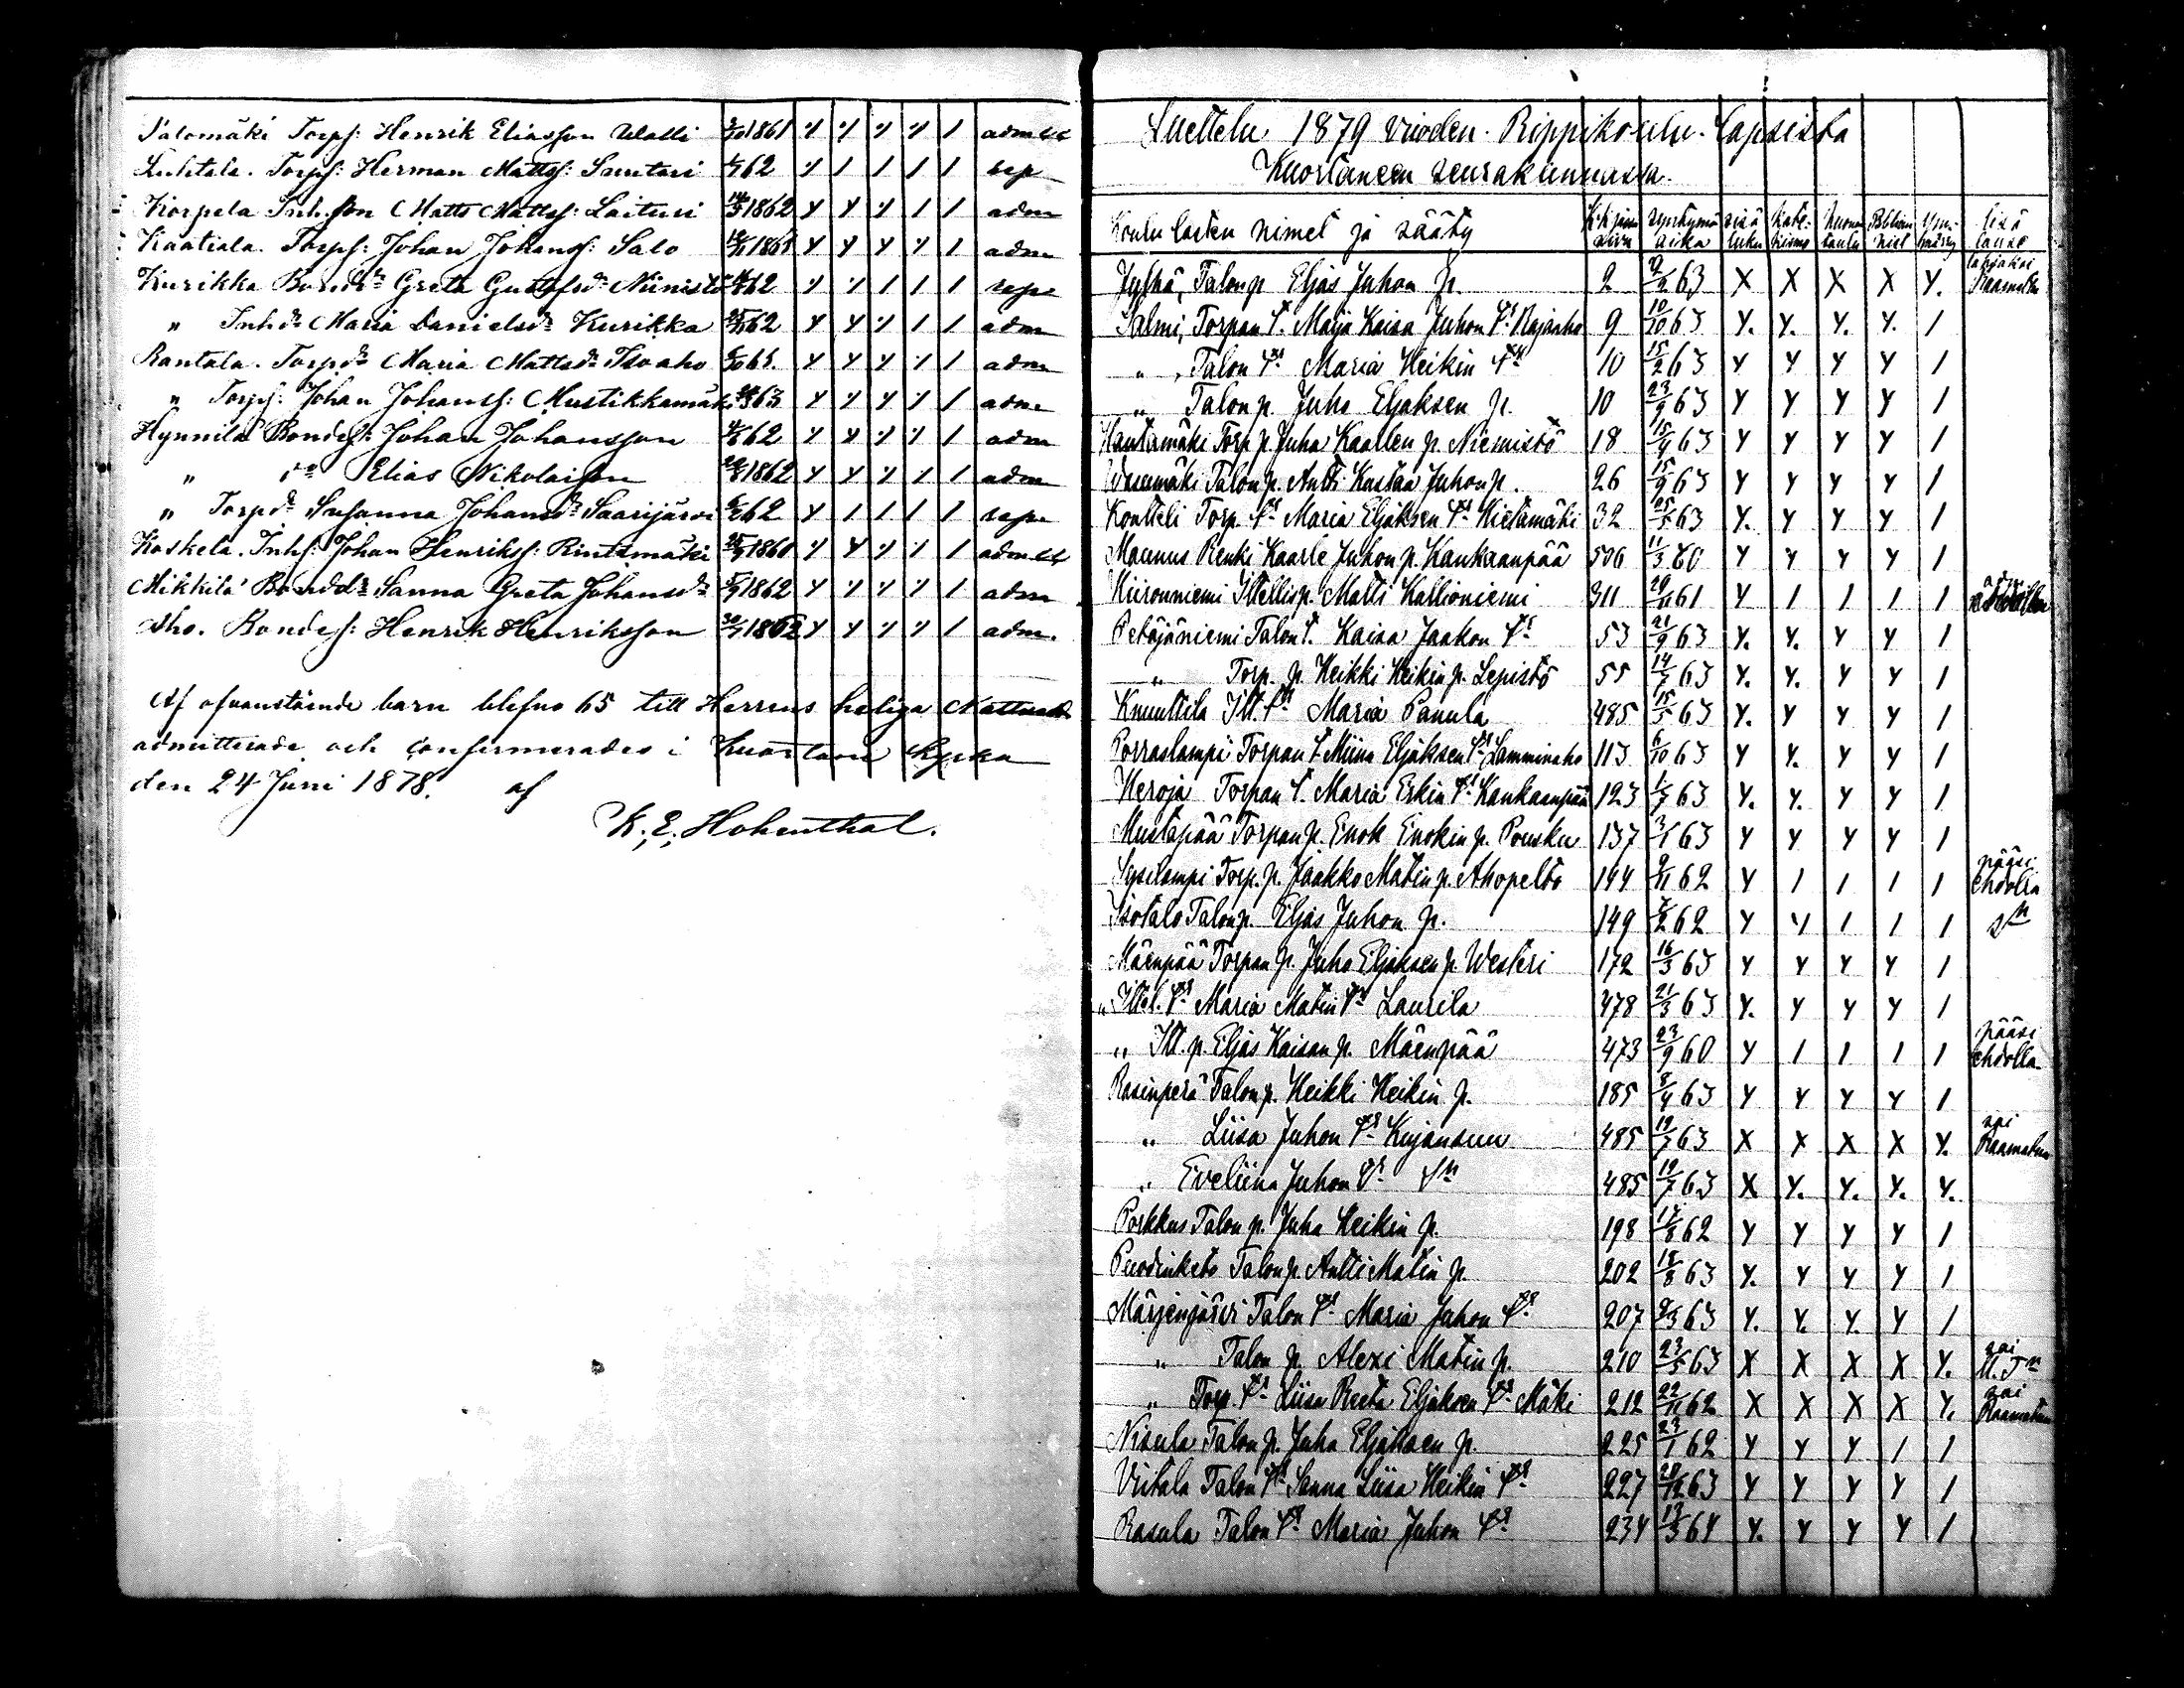 Salomäki Torps: Henrik Eliasson Ulatti 1861 adm
Luhtala. Torps: Herman Mattss: Santari 62 rep
Korpela Inh.son Matts Mattss: Laituri 1862 adm
Kaatiala. Torps: Johan Johanss: Salo 1861 adm
Kurikka Bondedr Greta Gustafsdr Niinistö 62 repr
" Inh.dr Maria Danielsdr Kurikka 62 adm
Rantala. Torpdr Maria Mattsdr Isoaho 63. adm
" Torps: Johan Johanss: Mustikkamäki 63 adm
Hynnilä Bondes: Johan Johansson 62 adm
" do Elias Nikolaisson 1862 adm
" Torpdr Susanna Johansdr Saarijärvi 62 repr
Koskela. Inhs: Johan Henrikss: Rintamäki 1860 adm
Mikkilä Bondedr Sanna Greta Johansdr 1862 adm
Aho. Bondes: Henrik Henriksson 1862 adm.
Af ofvanstående barn blefvo 65 till Herrens heliga Nattvard
admitterade och confirmerades i Kuortane kyrka
den 24 Juni 1878. af
K. E. Hohenthal.
Luettelu 1879 vuoden Rippikoulu-lapsista
Kuortaneen seurakunnassa.
Koulu lasten nimet ja sääty K.kirjan sivu syntymä aika sisä luku Kate-kismus Huoneen taulu Biblian hist Ym-märrys lisä lause
Jylhä, Talonp Eljas Juhon p. 2 12/2 63 X X X X Y. lahjaksi Raamatun
Salmi, Torpan t. Maija Kaisa Juhon tr Rajaaho 9 10/10 63 Y. Y. Y. Y. 1
" Talon tr Maria Heikin tr 10 15/2 63 Y Y Y Y 1
" Talon p. Juho Eljaksen p. 10 23/9 63 Y Y Y Y 1
Hantamäki Torp p. Juha Kaarlen p. Niemistö 18 15/4 63 Y Y Y Y 1
Wasumäki Talon p. Antti Kustaa Juhon p. 26 15/9 63 Y Y Y Y 1
Koutteli Torp. tr Maria Eljaksen tr Hietamäki 32 25/5 63 Y. Y Y Y 1
Maunus Renki Kaarle Juhon p. Kankaanpää 506 11/3 60 Y Y Y Y 1
Kiironniemi Itellisp. Matti Kallioniemi 311 29/11 61 Y 1 1 1 1
Petäjäniemi Talon t. Kaisa Jaakon tr 53 21/9 63 Y. Y. Y Y 1
" Torp. p. Heikki Heikin p. Lepistö 55 14/7 63 Y. Y. Y Y 1
Knuuttila Itl. tr Maria Panula 485 15/5 63 Y. Y Y Y 1
Porraslampi Torpan t Miina Eljaksen tr Lamminaho 113 6/10 63 Y Y. Y Y 1
Heroja Torpan t. Maria Erkin tr Kankaanpää 123 1/7 63 Y. Y. Y Y 1
Mustapää Torpan p. Enok Enokin p. Pousku 137 3/1 63 Y Y Y Y 1
Sysilampi Torp. p. Jaakko Matin p. Ahopelto 144 9/11 62 Y 1 1 1 1 pääsi ehdolla
Isotalo Talon p. Eljas Juhon p. 149 7/2 62 Y Y 1 1 1 sn
Mäenpää Torpan p. Juho Eljaksen p. Westeri 172 16/3 63 Y Y Y Y 1
" Ittel. tr Maria Matin tr Laurila 478 21/3 63 Y. Y Y Y 1
" Itl. p. Eljas Kaisan p. Mäenpää 473 23/9 60 Y 1 1 1 1 pääsi ehdolla
Rasinperä Talon p. Heikki Heikin p. 185 8/4 63 Y Y Y Y 1
" Liisa Juhon tr Kujansuu 485 19/7 63 X X X X Y. sai Raamatun
" Eveliina Juhon tr Sn 485 19/7 63 X Y. Y. Y. Y.
Porkkus Talon p. Juha Heikin p. 198 17/8 62 Y Y Y Y 1
Puodinketo Talon p. Antti Matin p. 202 18/8 63 Y. Y Y Y 1
Märjenjärvi Talon tr Maria Juhon tr 207 2/3 63 Y. Y. Y. Y 1
" Talon p. Alexi Matin p. 210 23/5 63 X X X X Y. sai U. Tn
" Torp. tr Liisa Reeta Eljaksen tr Mäki 212 22/11 62 X X X X Y. sai Raamatun
Nisula Talon p. Juha Eljaksen p. 225 23/1 62 Y Y Y 1 1
Viitala Talon tr Sanna Liisa Heikin tr 227 20/12 63 Y Y Y Y 1
Rasula Talon tr Maria Juhon tr 234 13/3 64 Y. Y Y Y 1